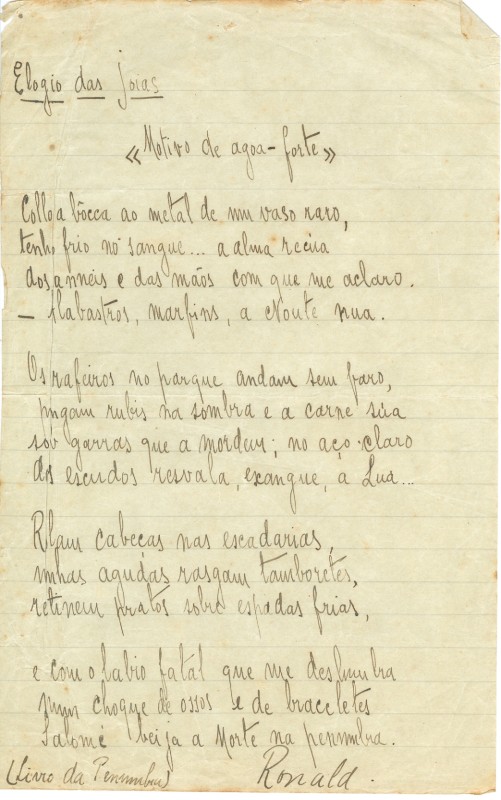 Elogio das joias
«Motivo de agoa-forte»
Collo a bôcca ao metal de um vaso raro,
tenho frio no sangue... a alma recúa
dos anneis e das mãos com que me aclaro.
— Alabastros, marfins, a Noute nua.
Os rafeiros no parque andam sem faro,
pingam rubis na sombra e a carne súa
sob garras que a mordem; no aço claro
dos escudos resvala, exangue, a Lua...
Rolam cabecas nas escadarias,
unhas agudas rasgam tamboretes,
retinem pratos sobre espadas frias,
e com o labio fatál que me deslumbra
num choque de ossos e de braceletes
Salomé beija a Morte na penumbra.
(Livro da Penumbra) Ronald.